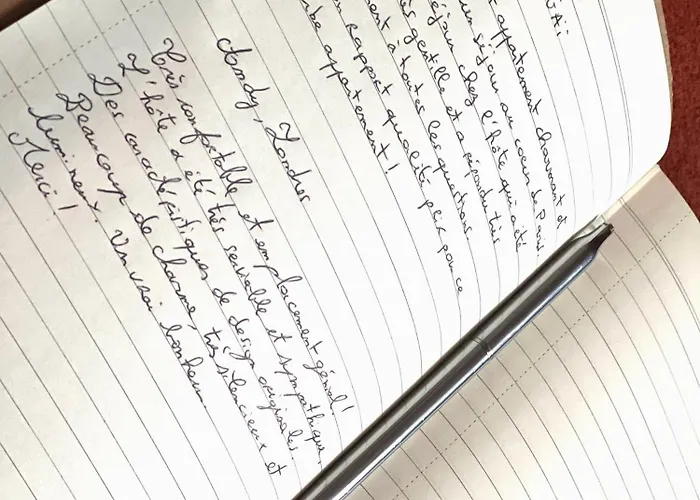 appartement charmant et
un séjour au coeur de Paris
chez l'hôte qui a été
gentille et a répondu très
à toutes les questions.
rapport qualité prix pour ce
appartement!
Andy, Londres
Très confortable, et emplacement génial!
L'hôte a été très serviable et sympathique.
Des caractéristiques de design originales.
Beaucoup de charme, très silencieux et
lumineux. Un vrai bonheur.
Merci!